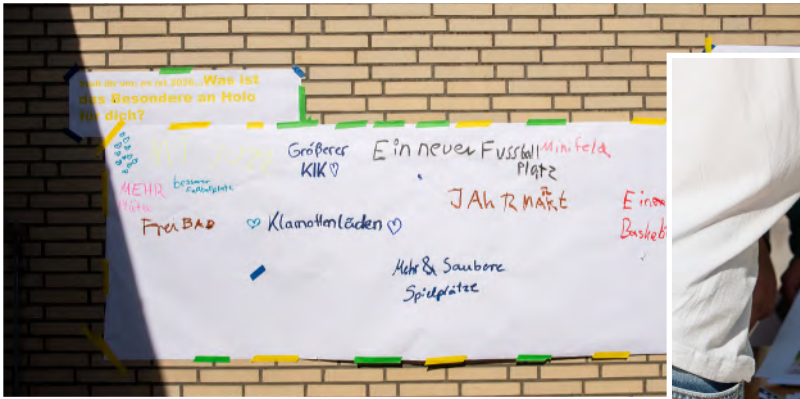 Stell dir vor, es ist 2030...Was ist
das Besondere an Holo
für dich?
Größerer
KIK
Ein neuer Fussball
Platz
Minifeld
MEHR
bessere
Fußballplätze
JAHRMARKT
FreiBAD
Klamottenläden
Mehr & Saubere
Spielplätze